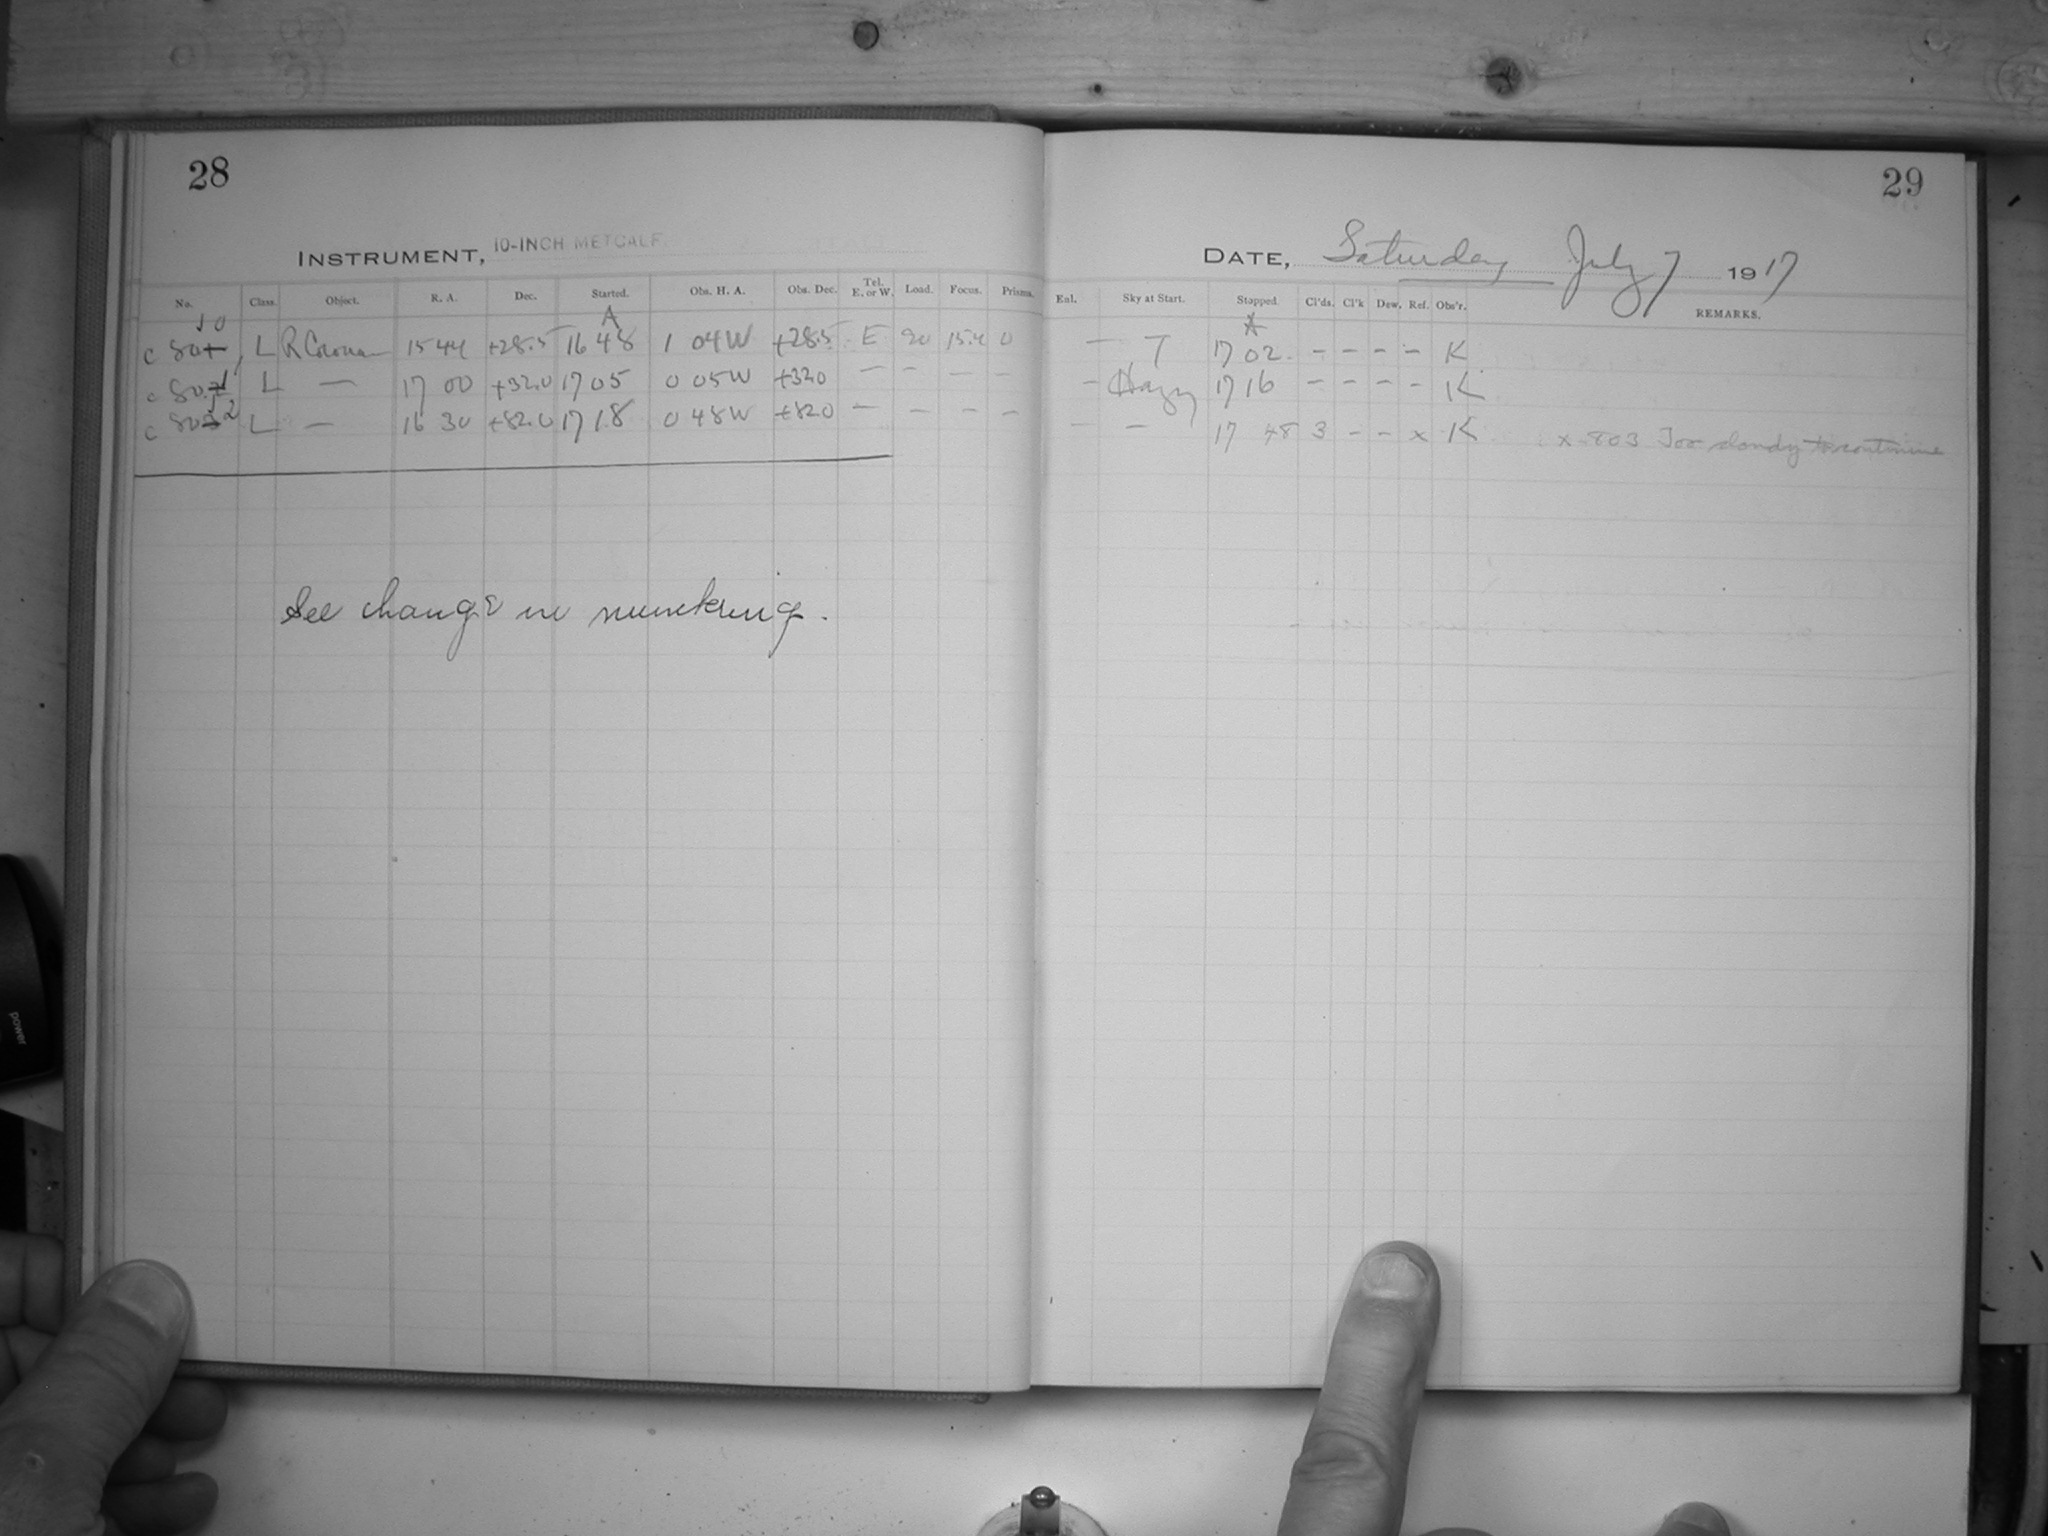 28
INSTRUMENT, 10-INCH METCALF
No. Class. Object. R. A. Dec. Started. Obs. H. A. Obs. Dec. Tel. E. or W. Load. Focus. Prisms.
10 A
c 801 L R Coronae 15 44 +28.5 16 48 1 04 W +28.5 E 20 15.4 0
c 802 1 L — 17 00 +32.0 17 05 0 05 W +32.0 — — — —
c 803 2 L — 16 30 +82.0 17 18 0 48 W +82.0 — — — —
See change in numbering.
29
DATE, Saturday July 7 1917
Enl. Sky at Start. Stopped. Cl'ds. Cl'k Dew. Ref. Obs'r. REMARKS.
A
— T 17 02 - - - - K
- Hazy 17 16 - - - - K
— — 17 48 3 - - x K x-803 Too cloudy to continue
power